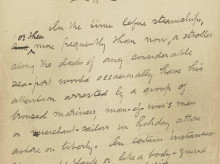 In the time before steamships,
or then
more frequently than now, a stroller
along the docks of any considerable
sea-port would occasionally have his
attention arrested by a group of
bronzed mariners, man-of-war's men
or merchant-sailors in holiday attire
ashore on liberty. In certain instances
they would flank, or like a body-guard